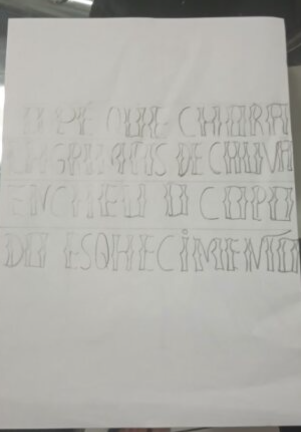 O PÉ QUE CHORA
LAGRIMAS DE CHUVA
ENCHEU O COPO
DO ESQHECIMENTO